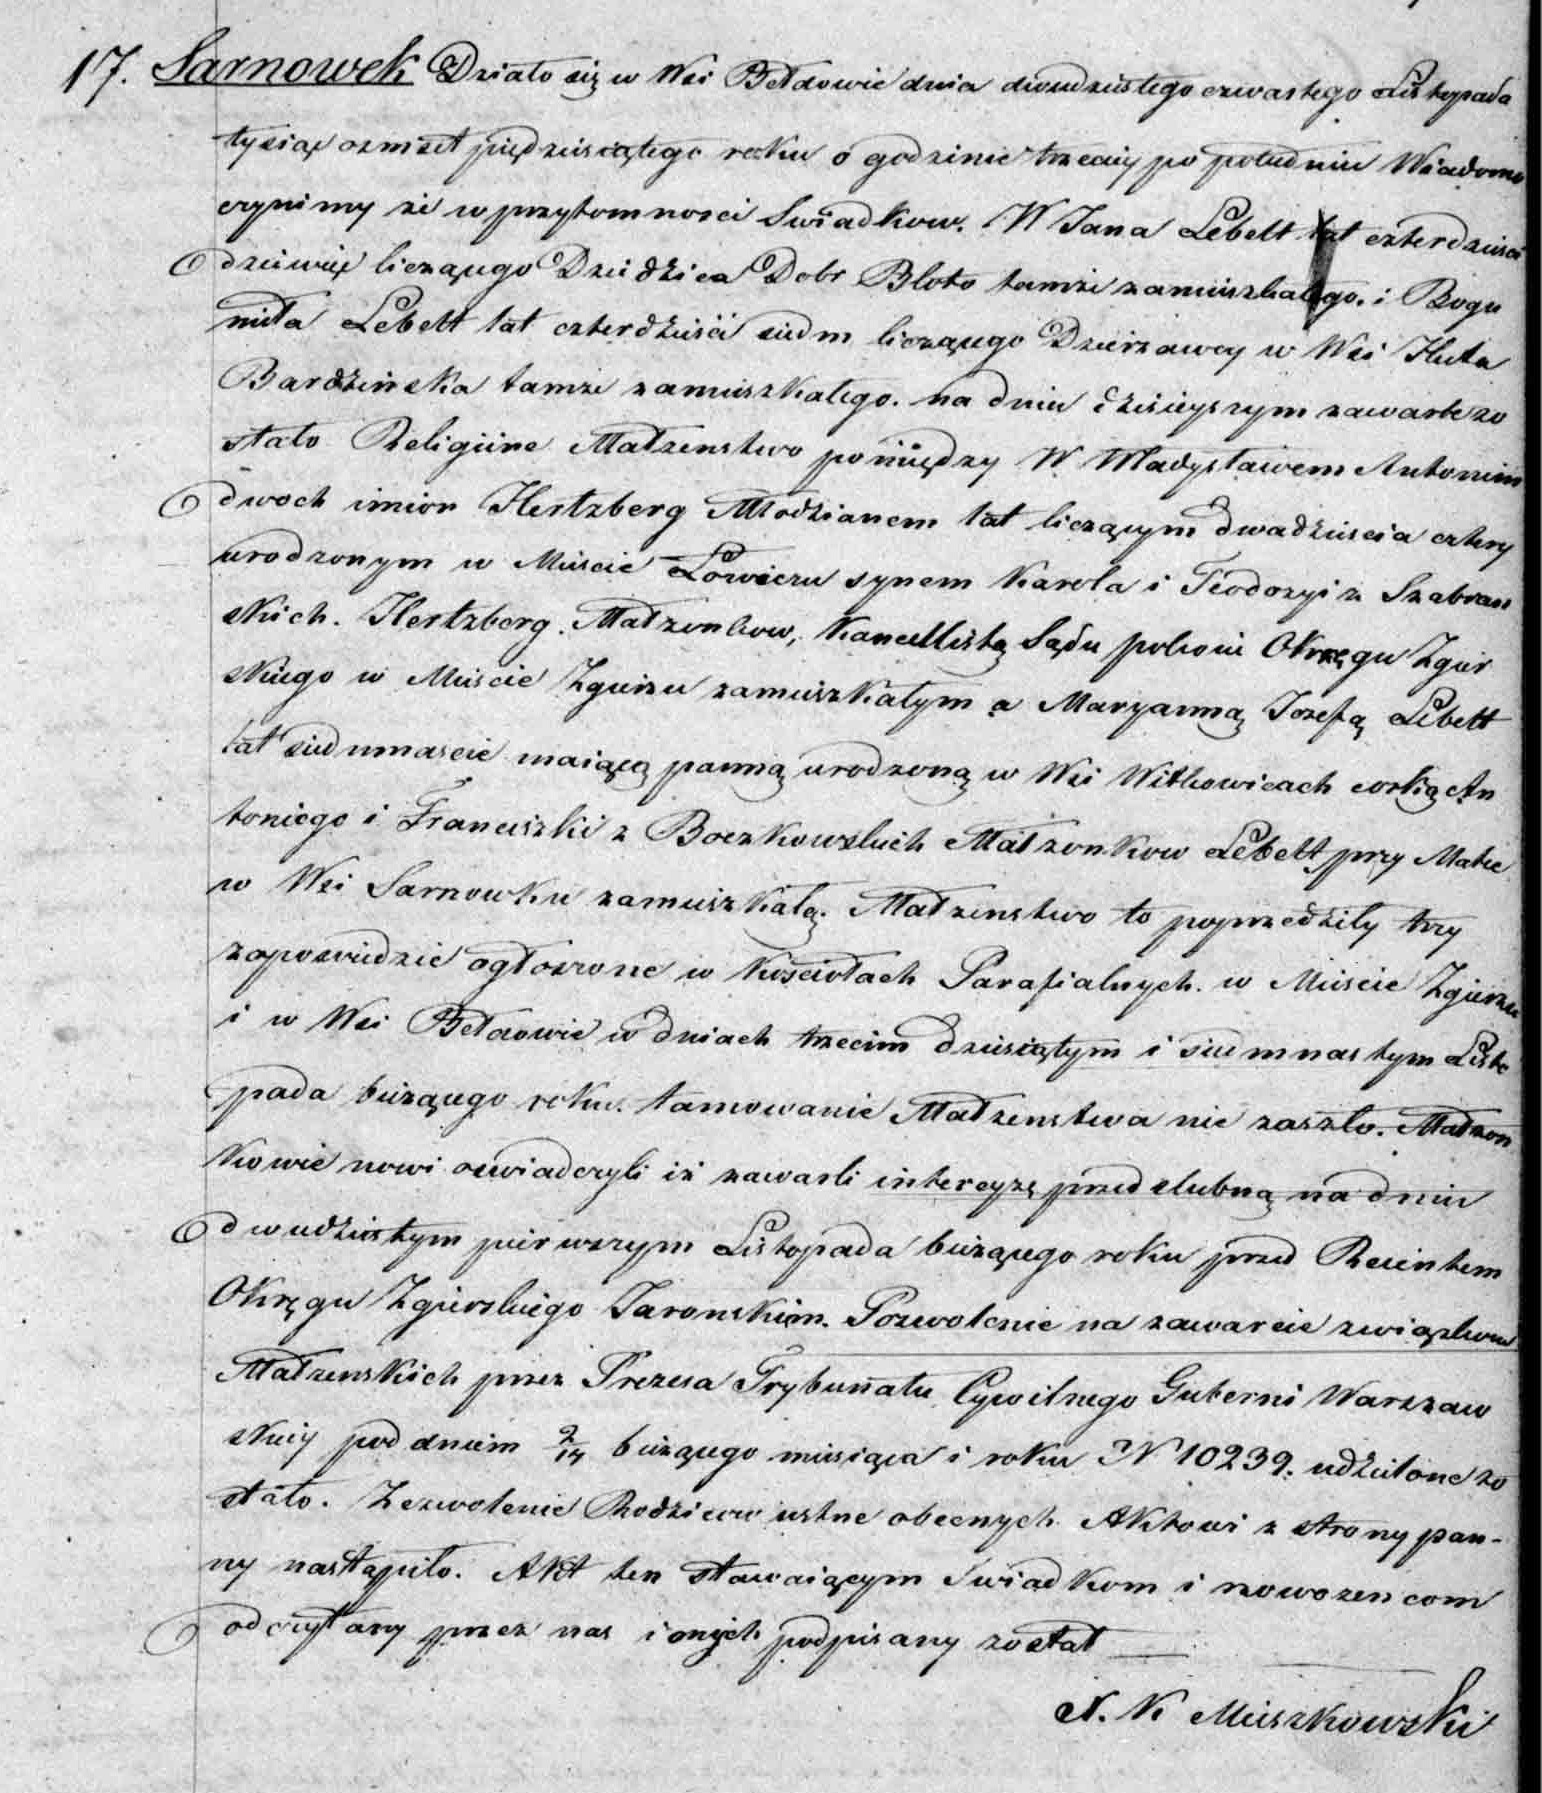 17. Sarnowek Działo się w Wsi Bełdowie dnia dwudziestego czwartego Listopada
tysiąc osmset pięćdziesiątego roku o godzinie trzeciey po południu Wiadomo
czynimy że w przytomnosci Swiadkow. W Jana Lebelt lat czterdziesci
dziewięć liczącego Dziedzica Dobr Bloto tamże zamieszkałego. i Bogu
miła Lebelt lat czterdzieści siedm liczącego Dzierżawcy w Wsi Huta
Bardzińska tamże zamieszkałego. na dniu dzisieyszym zawarte zo
stało Religiine Małżenstwo pomiędzy W. Władysławem Antonim
dwoch imion Hertzberg Młodzianem lat liczącym dwadzieścia cztery
urodzonym w Miescie Łowiczu synem Karola i Teodozyi z Szabran
skich. Hertzberg. Małżonkow, Kancellistą Sądu pokoiu Okręgu Zgier
skiego w Miescie Zgierzu zamieszkałym a Maryanną Jozefą Lebelt
lat siedmnascie maiącą panną urodzoną w Wsi Witkowicach corką An
toniego i Franciszki z Boczkowskich Małżonkow Lebelt przy Matce
w Wsi Sarnowku zamieszkałą. Małżenstwo to poprzedziły trzy
zapowiedzie ogłoszone w Kościołach Parafialnych. w Miescie Zgierzu
i w Wsi Bełdowie w dniach trzecim dziesiątym i siedmnastym Listo
pada bieżącego roku. tamowanie Małżenstwa nie zaszło. Małżon
kowie nowi oswiadczyli iż zawarli intercyzę przedslubną na dniu
dwudziestym pierwszym Listopada bieżącego roku przed Reientem
Okręgu Zgierskiego Jaronskim. Pozwolenie na zawarcie związkow
Małżenskich przez Prezesa Trybunału Cywilnego Guberni Warszaw
skiey pod dniem 2/14 bieżącego miesiąca i roku N 10239. udzielone zo
stało. Zezwolenie Rodzicow ustne obecnych Aktowi z strony pan-
ny nastąpiło. Akt ten stawaiącym świadkom i nowozencom
odczytany przez nas i onych podpisany został
X. K Mieszkowski